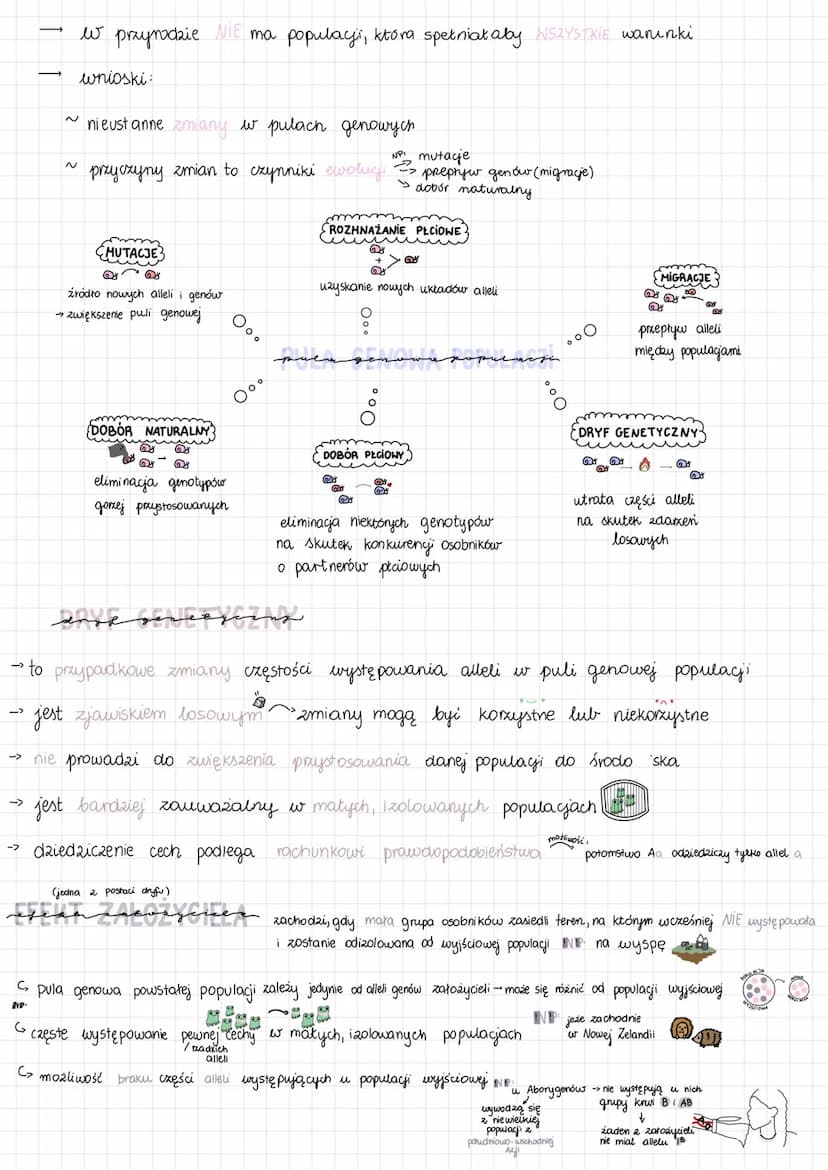 → w przyrodzie NIE ma populacji, która spełniałaby WSZYSTKIE warunki
→ wnioski:
~ nieustanne zmiany w pulach genowych
~ przyczyny zmian to czynniki ewolucji
NP:
mutacje
→ przepływ genów (migracje)
↘ dobór naturalny
MUTACJE
źródło nowych alleli i genów
→ zwiększenie puli genowej
ROZMNAŻANIE PŁCIOWE
uzyskanie nowych układów alleli
MIGRACJE
przepływ alleli
między populacjami
PULA GENOWA POPULACJI
pula genowa populacji
DOBÓR NATURALNY
eliminacja genotypów
gorzej przystosowanych
DOBÓR PŁCIOWY
eliminacja niektórych genotypów
na skutek konkurencji osobników
o partnerów płciowych
DRYF GENETYCZNY
utrata części alleli
na skutek zdarzeń
losowych
DRYF GENETYCZNY
dryf genetyczny
→ to przypadkowe zmiany częstości występowania alleli w puli genowej populacji
→ jest zjawiskiem losowym → zmiany mogą być korzystne lub niekorzystne
→ nie prowadzi do zwiększenia przystosowania danej populacji do środo ska
→ jest bardziej zauważalny w małych, izolowanych populacjach
→ dziedziczenie cech podlega rachunkowi prawdopodobieństwa
możliwość:
potomstwo Aa odziedziczy tylko allel a
(jedna z postaci dryfu)
EFEKT ZAŁOŻYCIELA
efekt założyciela
zachodzi, gdy mała grupa osobników zasiedli teren, na którym wcześniej NIE występowała
i zostanie odizolowana od wyjściowej populacji NP: na wyspę
↪ pula genowa powstałej populacji zależy jedynie od alleli genów założycieli → może się różnić od populacji wyjściowej
NP:
↪ częste występowanie pewnej cechy w małych, izolowanych populacjach
/ rzadkich
alleli
NP: jeże zachodnie
w Nowej Zelandii
↪ możliwość braku części alleli występujących w populacji wyjściowej NP:
u Aborygenów → nie występują u nich
grupy krwi B i AB
wywodzą się
z niewielkiej
populacji z
południowo-wschodniej
Azji
żaden z założycieli
nie miał allelu Iᴮ